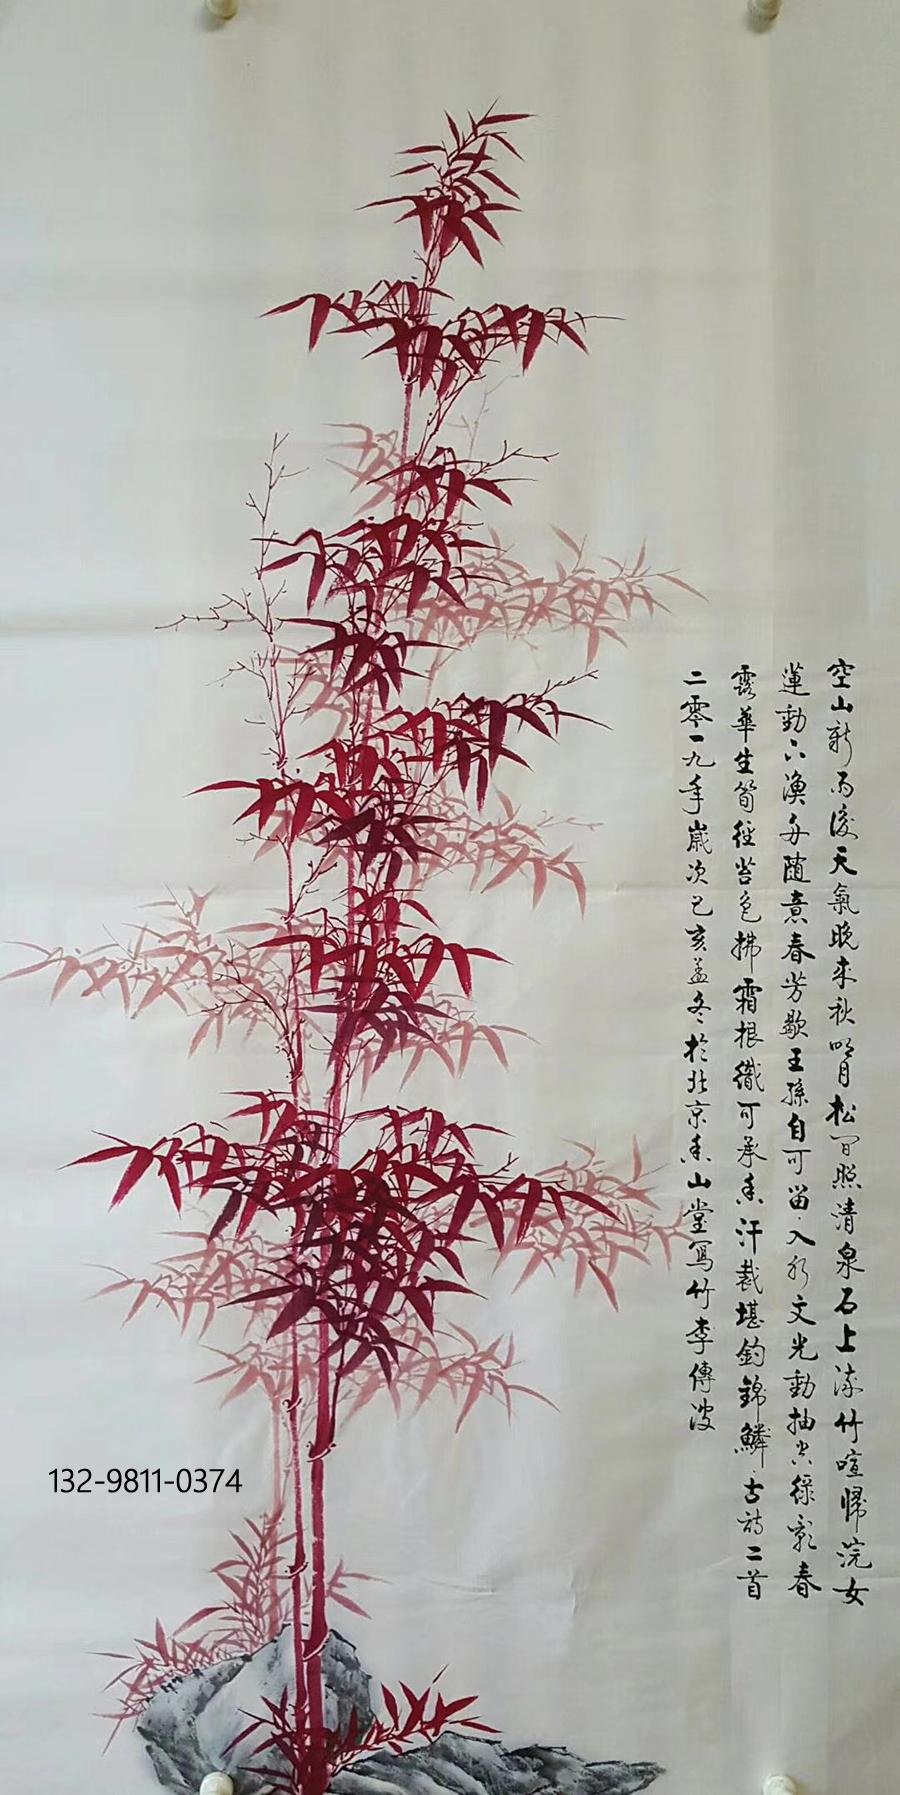 空山新雨後天氣晚來秋明月松間照清泉石上流竹喧歸浣女
蓮動下漁舟随意春芳歇王孫自可留入水文光動抽空綠影春
露華生筍徑苔色拂霜根織可承香汗裁堪釣錦鱗古詩二首
二零一九年歲次己亥孟冬於北京香山堂寫竹李傳波
132-9811-0374